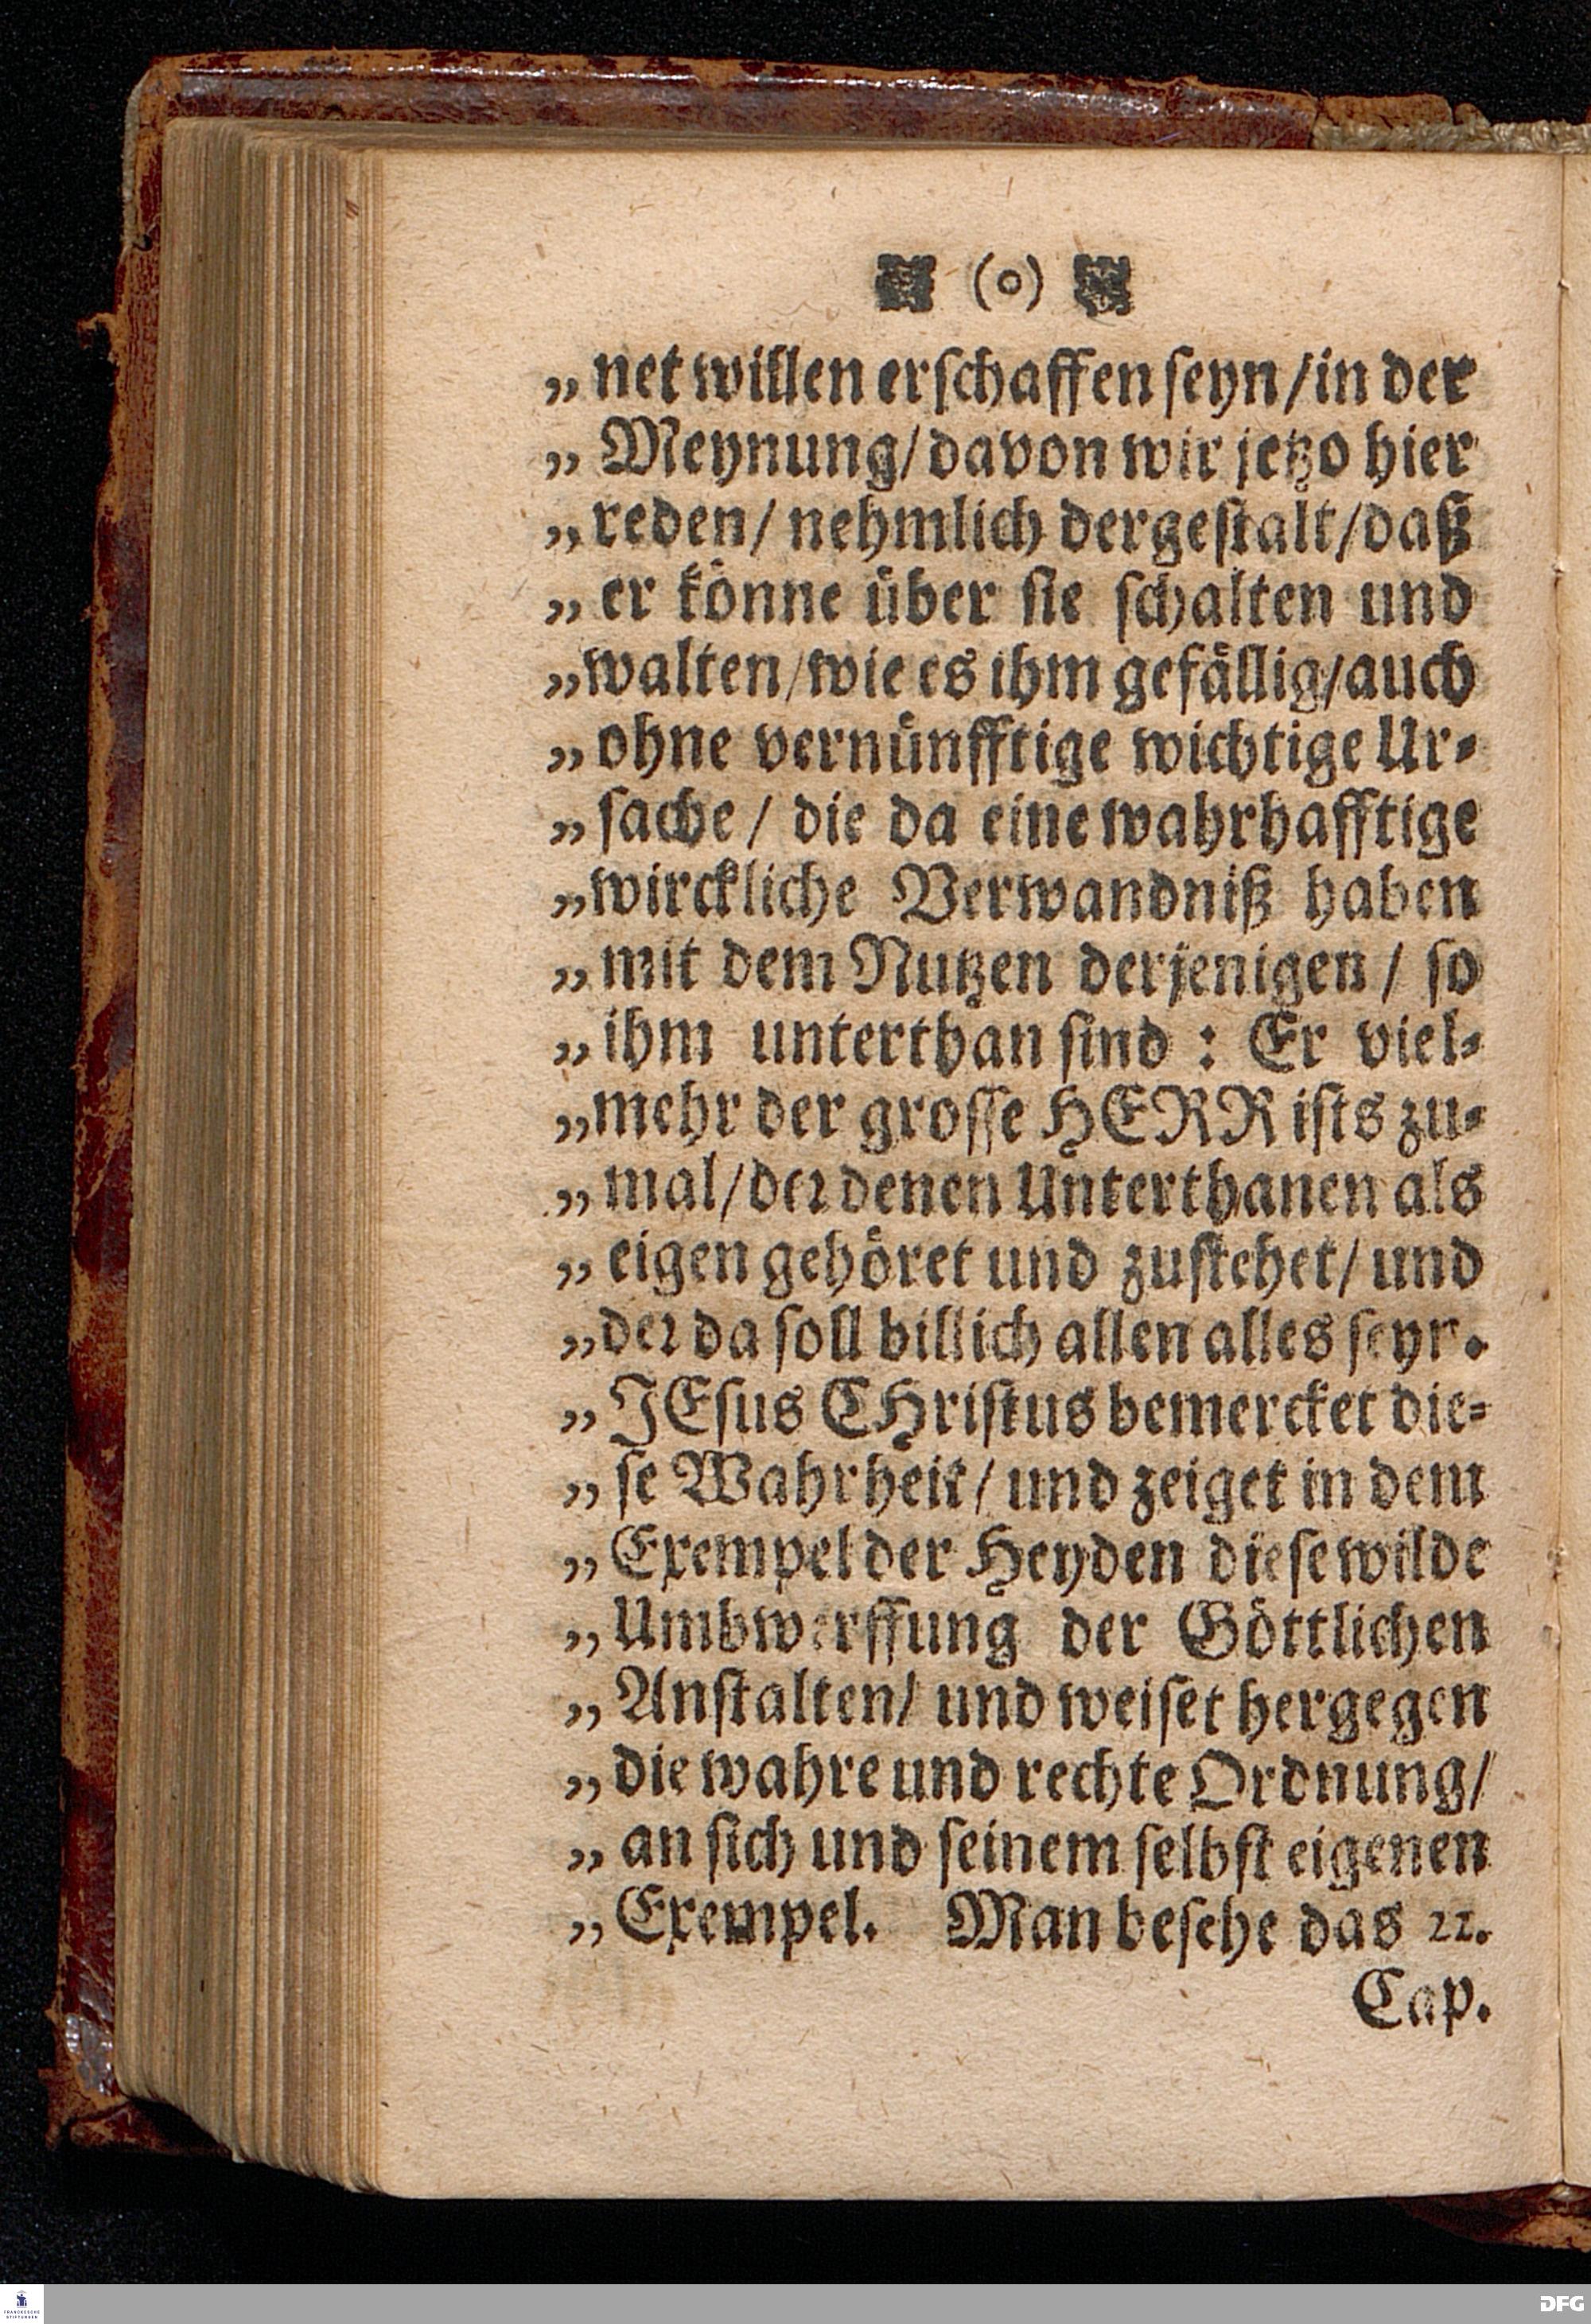 (o)
„ net willen erschaffen seyn/in der
„ Meynung/davon wir jetzo hier
„ reden/ nehmlich dergestalt/daß
„ er könne über sie schalten und
„ walten/wie es ihm gefällig/auch
„ ohne vernünfftige wichtige Ur-
„ sache/ die da eine wahrhafftige
„ wirckliche Verwandniß haben
„ mit dem Nutzen derjenigen/ so
„ ihm unterthan sind : Er viel-
„ mehr der grosse HERR ists zu-
„ mal/der denen Unterthanen als
„ eigen gehöret und zustehet/ und
„ der da soll billich allen alles seyn.
„ JEsus CHristus bemercket die-
„ se Wahrheit/ und zeiget in dem
„ Exempel der Heyden diese wilde
„ Umbwerffung der Göttlichen
„ Anstalten/ und weiset hergegen
„ die wahre und rechte Ordnung/
„ an sich und seinem selbst eigenen
„ Exempel. Man besehe das 22.
Cap.
FRANCKESCHE
STIFTUNGEN
DFG